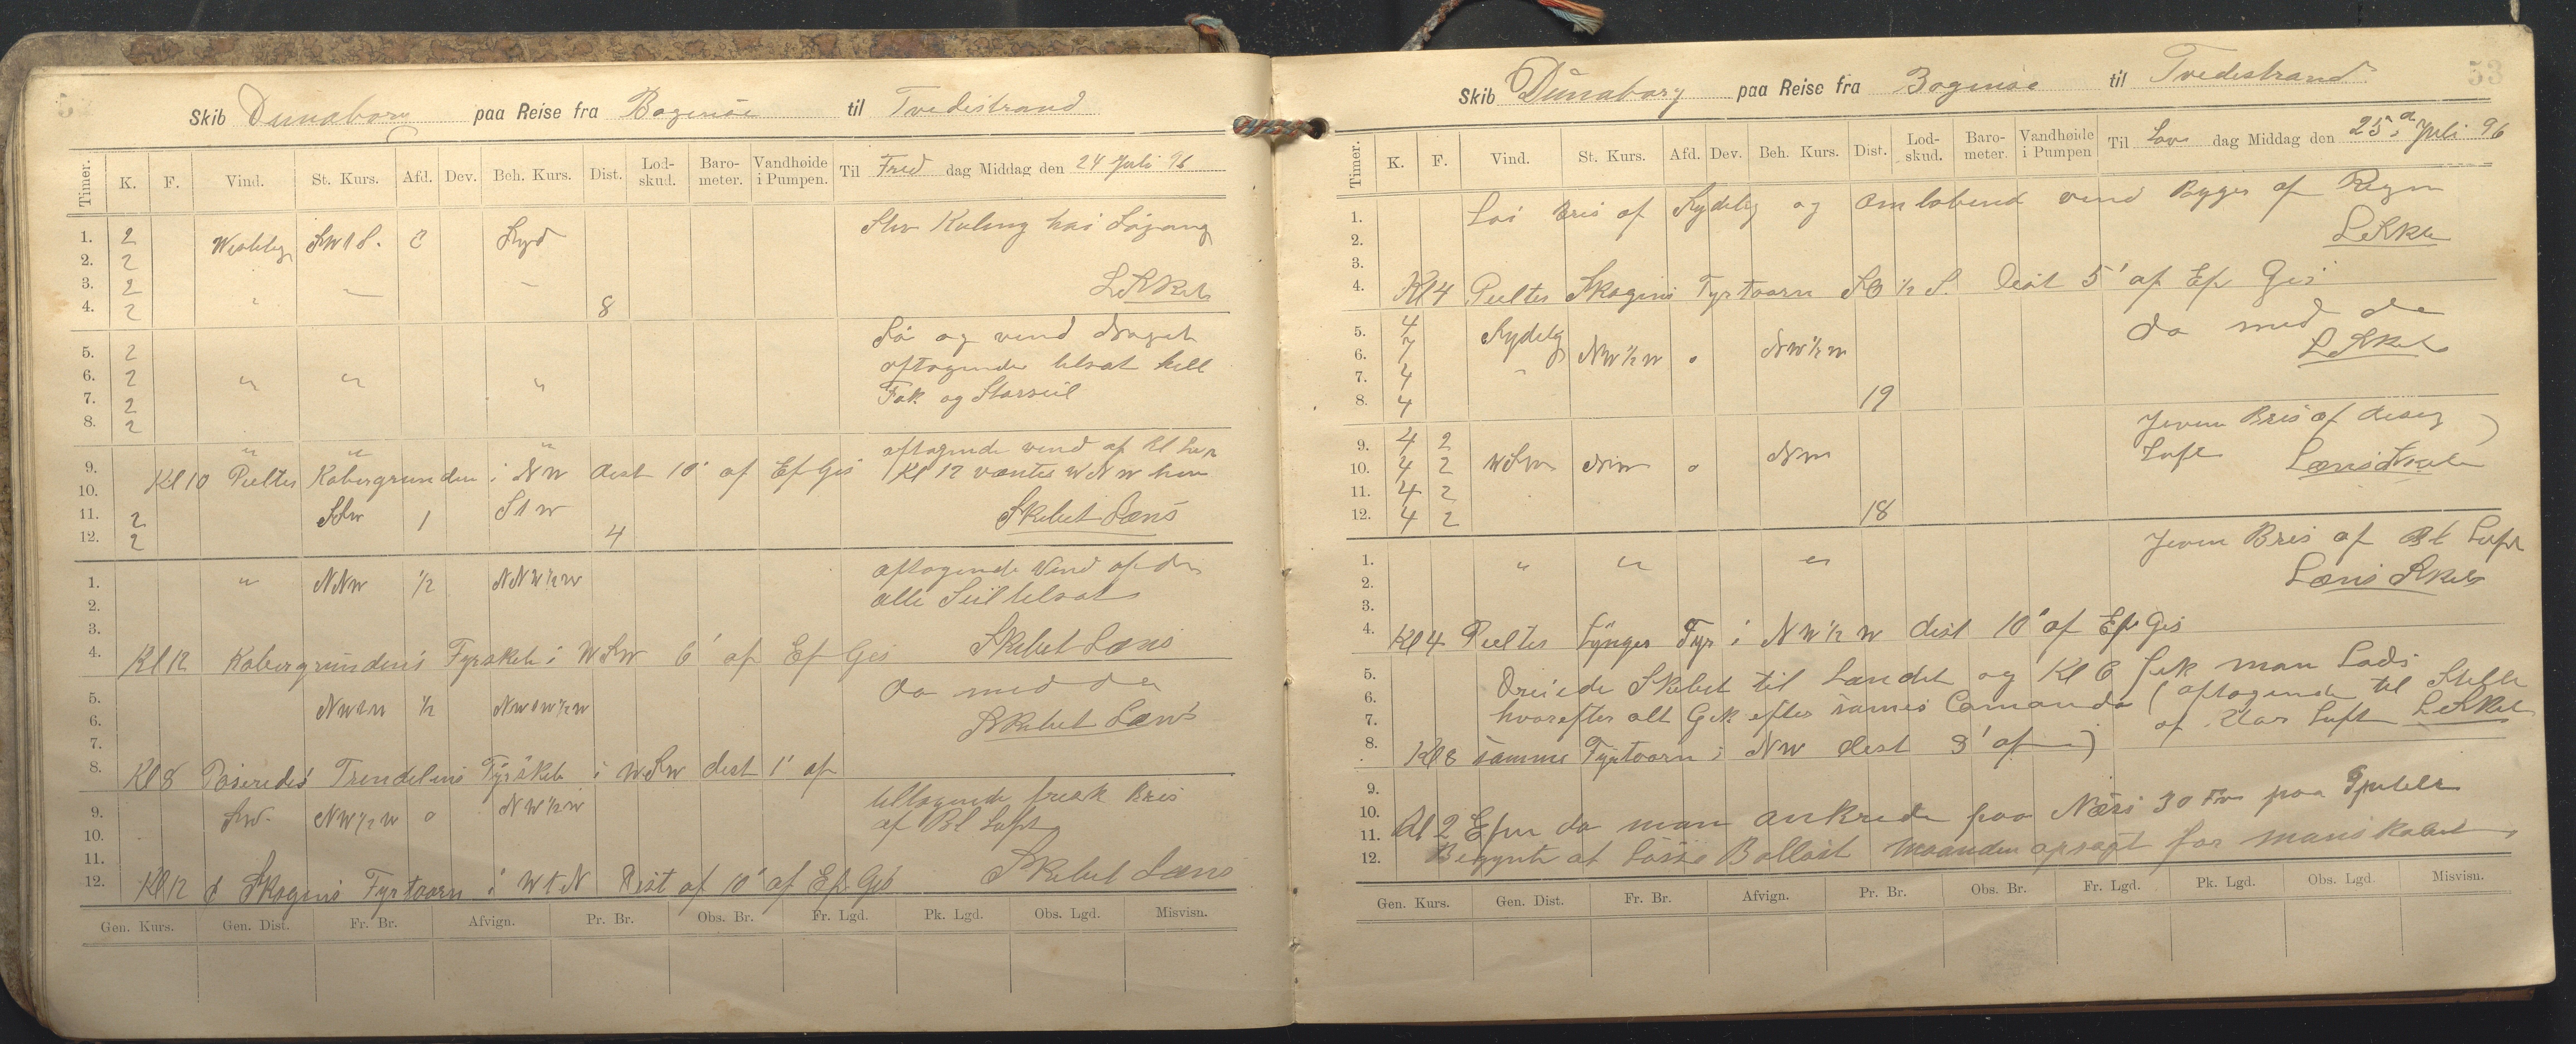 Skib Dunaborg paa Reise fra Bogensöe til Tvedestrand
Timer. K. F. Vind. St. Kurs. Afd. Dev. Beh. Kurs. Dist. Lod-skud. Baro-meter. Vandhøide i Pumpen. Til Fred dag Middag den 24 Juli 96
1. 2 Westlig SW t S. Syd Stiv Kuling høi Sögang
2. 2
3. 2
4. 2 " 8
5. 2 Sö og vind
6. 2 " " " aftagende tilsat
7. 2 Fok og Storseil
8. 2
9. " " " aftagende vind af
10. Kl 10 Peiltes Kobergrunden i NW dist 10' af Ef Gis Kl 12 WNW
11. 2 SSW 1 S t W Skibet Læns
12. 2 4
1. " NNW 1/2 NNW 1/2 W aftagende Vind
2. alle Seil tilsat
3. Skibet Læns
4. Kl 12 Kobergrundens Fyrskib i WSW 6' af Ef Gis
5. NW t W 1/2 NW t W 1/2 W do med do
6. Skibet Læns
7.
8. Kl 8 Paseredes Trendelens Fyrskib i WSW dist 1' af
9. SW. NW 1/2 W o NW 1/2 W tiltagende frisk Bris
10. af Bl Luft
11.
12. Kl 12 Skagens Fyrtaarn i W t N Dist af 10' af Ef Gis Skibet Læns
Gen. Kurs. Gen. Dist. Fr. Br. Afvign. Pr. Br. Obs. Br. Fr. Lgd. Pk. Lgd. Obs. Lgd. Misvisn.
53
Skib Dünaborg paa Reise fra Bogensöe til Tvedestrand
Timer. K. F. Vind. St. Kurs. Afd. Dev. Beh. Kurs. Dist. Lod-skud. Baro-meter. Vandhøide i Pumpen Til Löv dag Middag den 25. Juli 96
1. Löi Bris af Sydelig og omlöbend vind Bygger af Regn
2.
3.
4. Kl 4 Peiltes Skagens Fyrtaarn SO 1/2 S. Dist 5' af Ef Gis
5. 4 Sydelig do med do
6. 4 NW 1/2 W o NW 1/2 W
7. 4 "
8. 4 19
9. 4 2 Jevn Bris af diseg
10. 4 2 WSW NW o NW Luft
11. 4 2 Læns Skib
12. 4 2 18
1. " " " Jevn Bris af Bl Luft
2. Læns Skib
3.
4. Kl 4 Peiltes Lÿngör Fyr i NW 1/2 W dist 10' af Ef Gis
5. Dreiede Skibet til Landet og Kl 6 fik man Lods
6. hvorefter alt Gik efter sames Comando (aftagende til Stille
7. af Klar Luft
8. Kl 8 samme Fyrtaarn i NW dist 3' af
9.
10. Kl 2 Efm da man ankrede paa Næss 30 Fv paa
11. Begynte at Losse Ballast
12. for mandskabet
Gen. Kurs. Gen. Dist. Fr. Br. Afvign. Pr. Br. Obs. Br. Fr. Lgd. Pk. Lgd. Obs. Lgd. Misvisn.